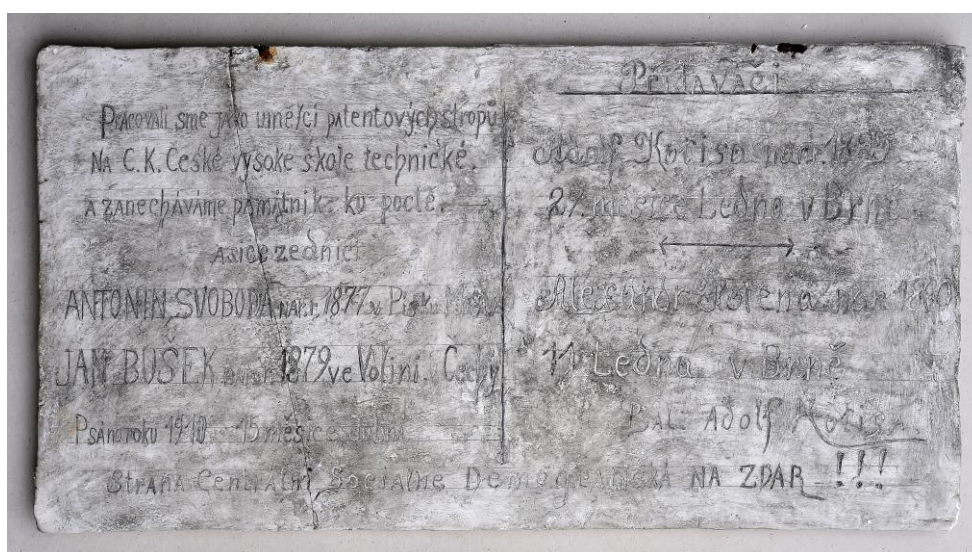 Pracovali sme jako umělci patentových stropů
NA C.K. České vysoké škole technické.
a zanecháváme památnik ku poctě.
a sice zedníci
ANTONIN SVOBODA nar. r. 1877 v Písku
JAN BUŠEK nar. r. 1879 ve Volini. Čechy
Psáno roku 1910 15 měsíce dubna
Přidavači
Adolf Kořisa nar.
27. měsíce Ledna v Brně
Alexandr nar. 1890
11 Ledna v Brně
Psal Adolf Kořisa
Strana Centralni Socialne Demogratická NA ZDAR !!!